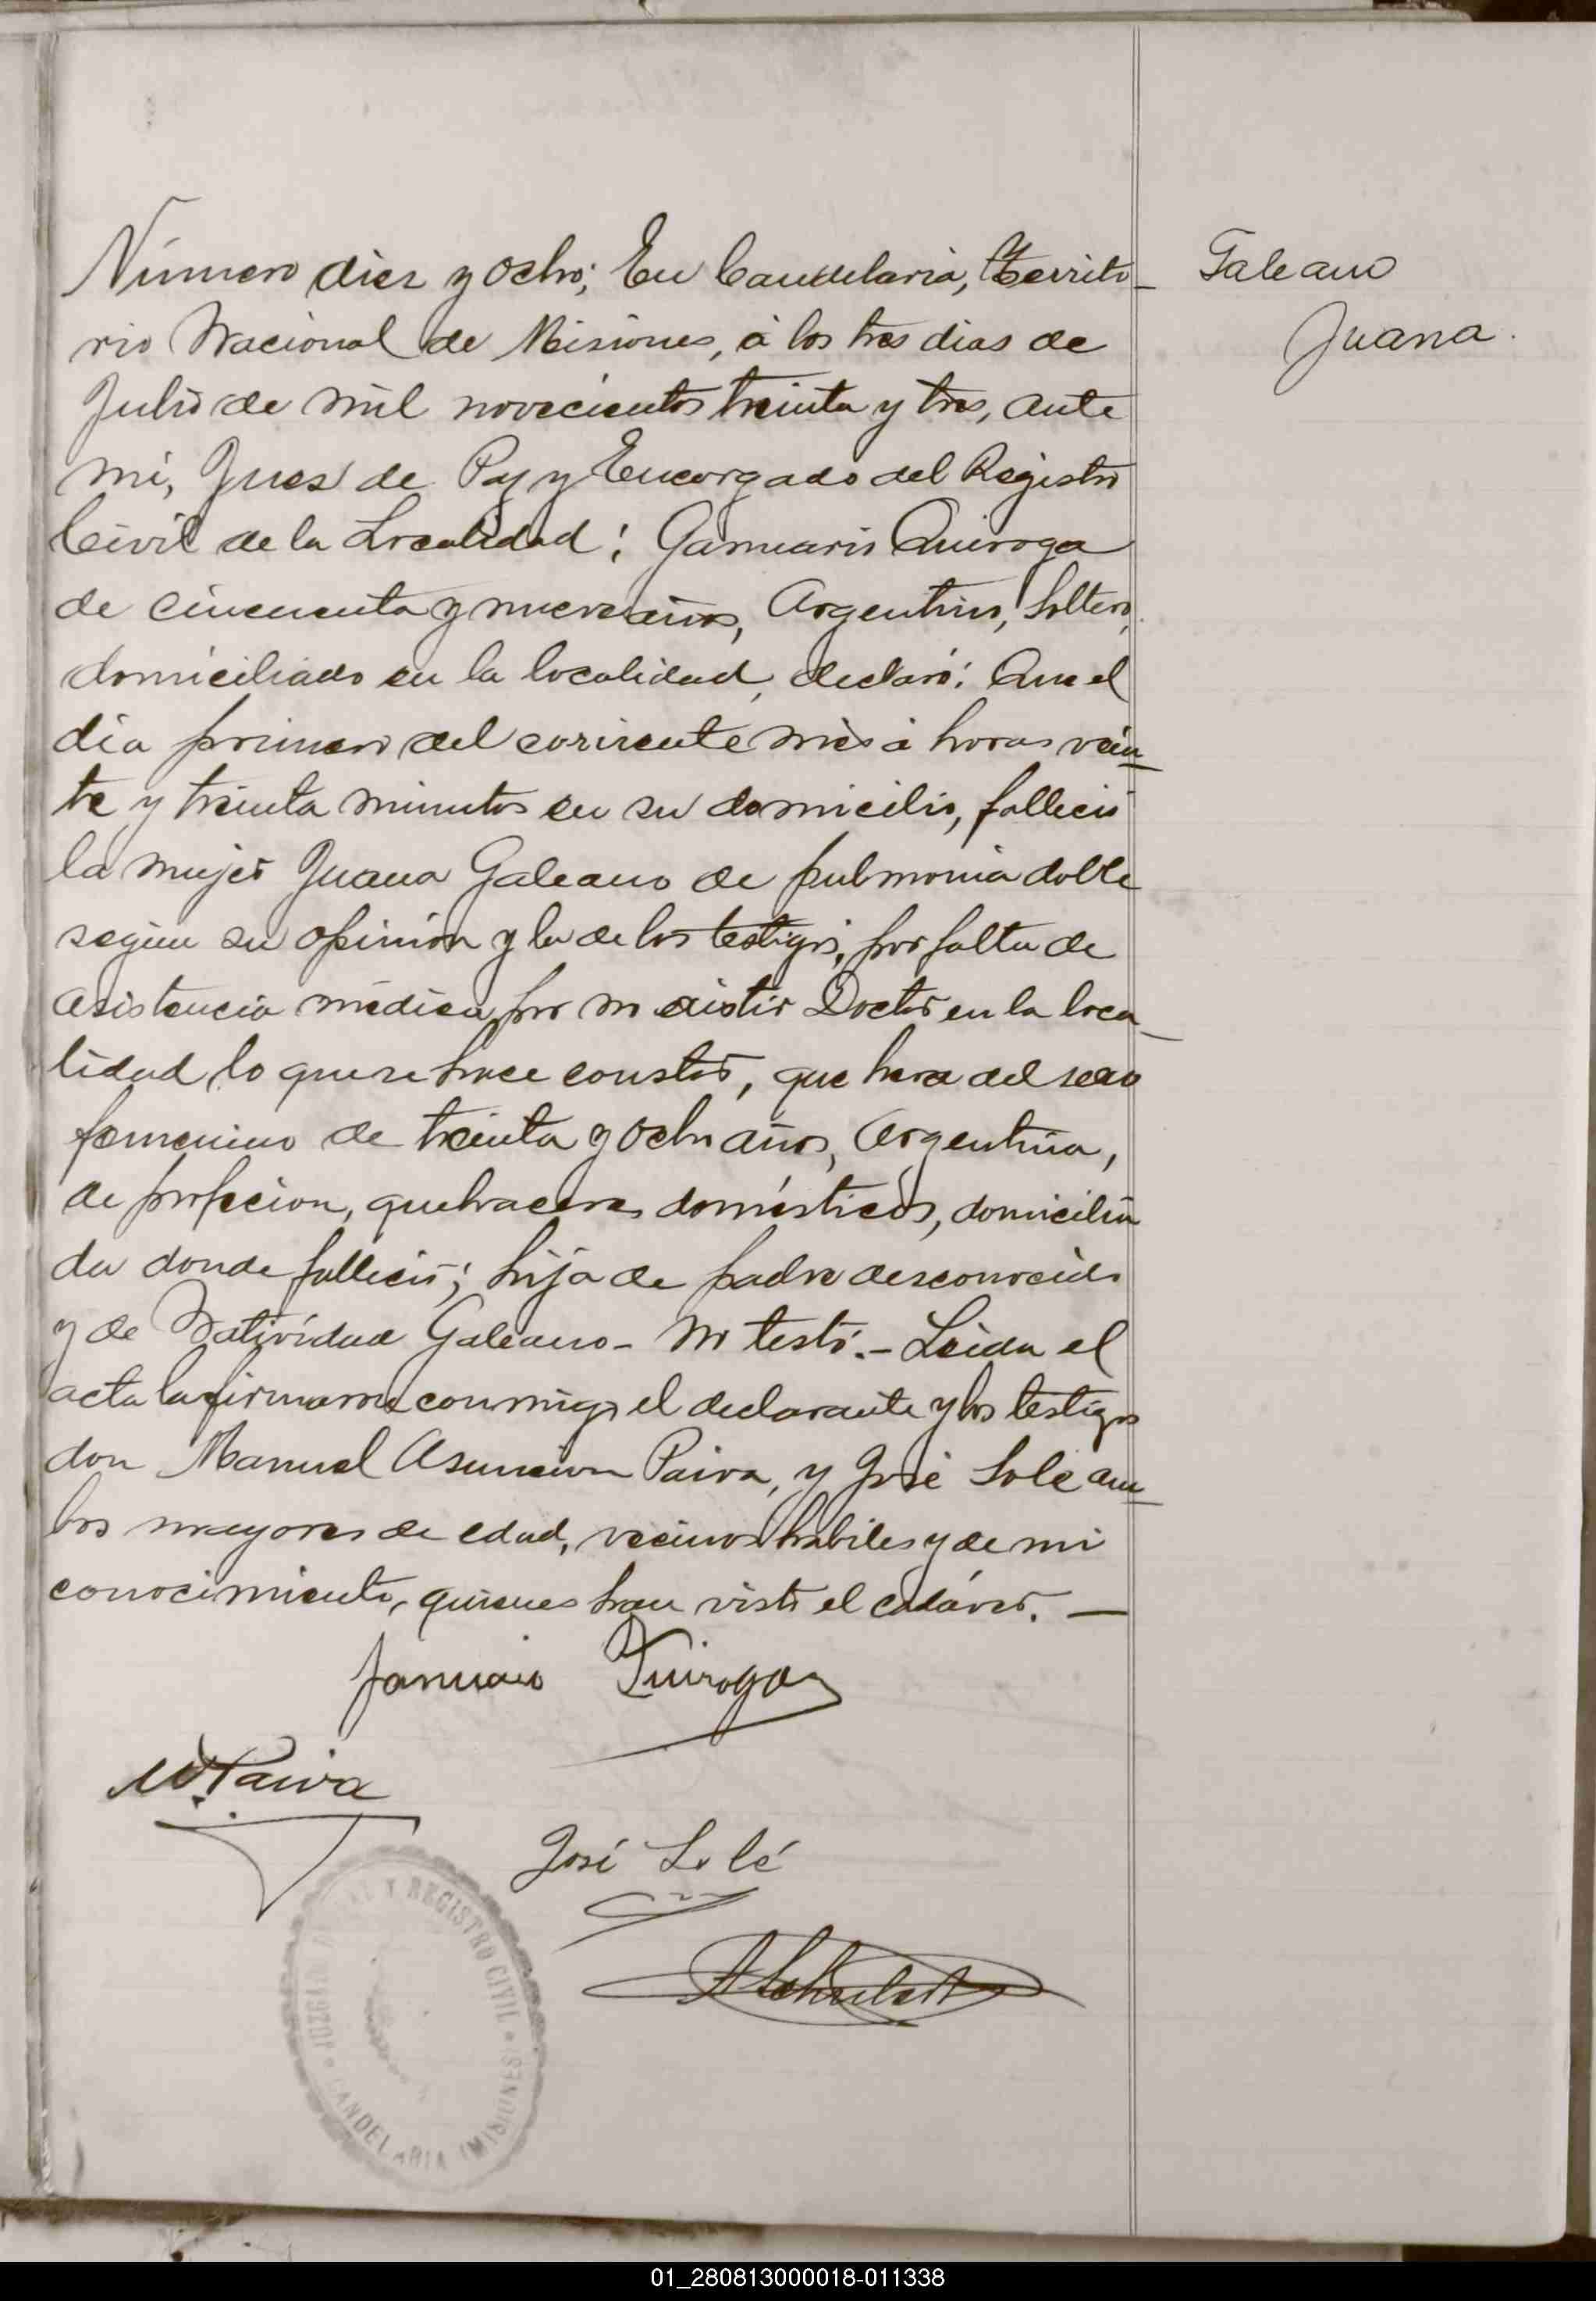 Número diez y ocho; En Candelaria, Territo-
rio Nacional de Misiones, á los tres dias de
Julio de mil novecientos treinta y tres, ante
mi, Juez de Paz y Encargado del Registro
Civil de la Localidad; Januario Quiroga
de cincuenta y nueve años, Argentino, soltero,
domiciliado en la localidad, declaró: Que el
dia primero del corriente mes á horas vein-
te y treinta minutos en su domicilio, falleció
la mujer Juana Galeano de pulmonia doble
segun su opinión y la de los testigos, por falta de
asistencia médica por no existir Doctor en la loca-
lidad lo que se hace constar, que hera del sexo
femenino de treinta y ocho años, Argentina,
de profecion, quehaceres domésticos, domicilia
da donde falleció; hija de padre desconocido
y de Natividad Galeano - No testó. - Leida el
acta la firmaron conmigo el declarante y los testigos
don Manuel Asuncion Paiva, y José Solé am-
bos mayores de edad, vecinos habiles y de mi
conocimiento, quienes han visto el cadáver. —
Galeano
Juana.
Januario Quiroga
M. Paiva
José Solé
JUZGADO Y REGISTRO CIVIL * CANDELARIA (MISIONES) *
01_280813000018-011338